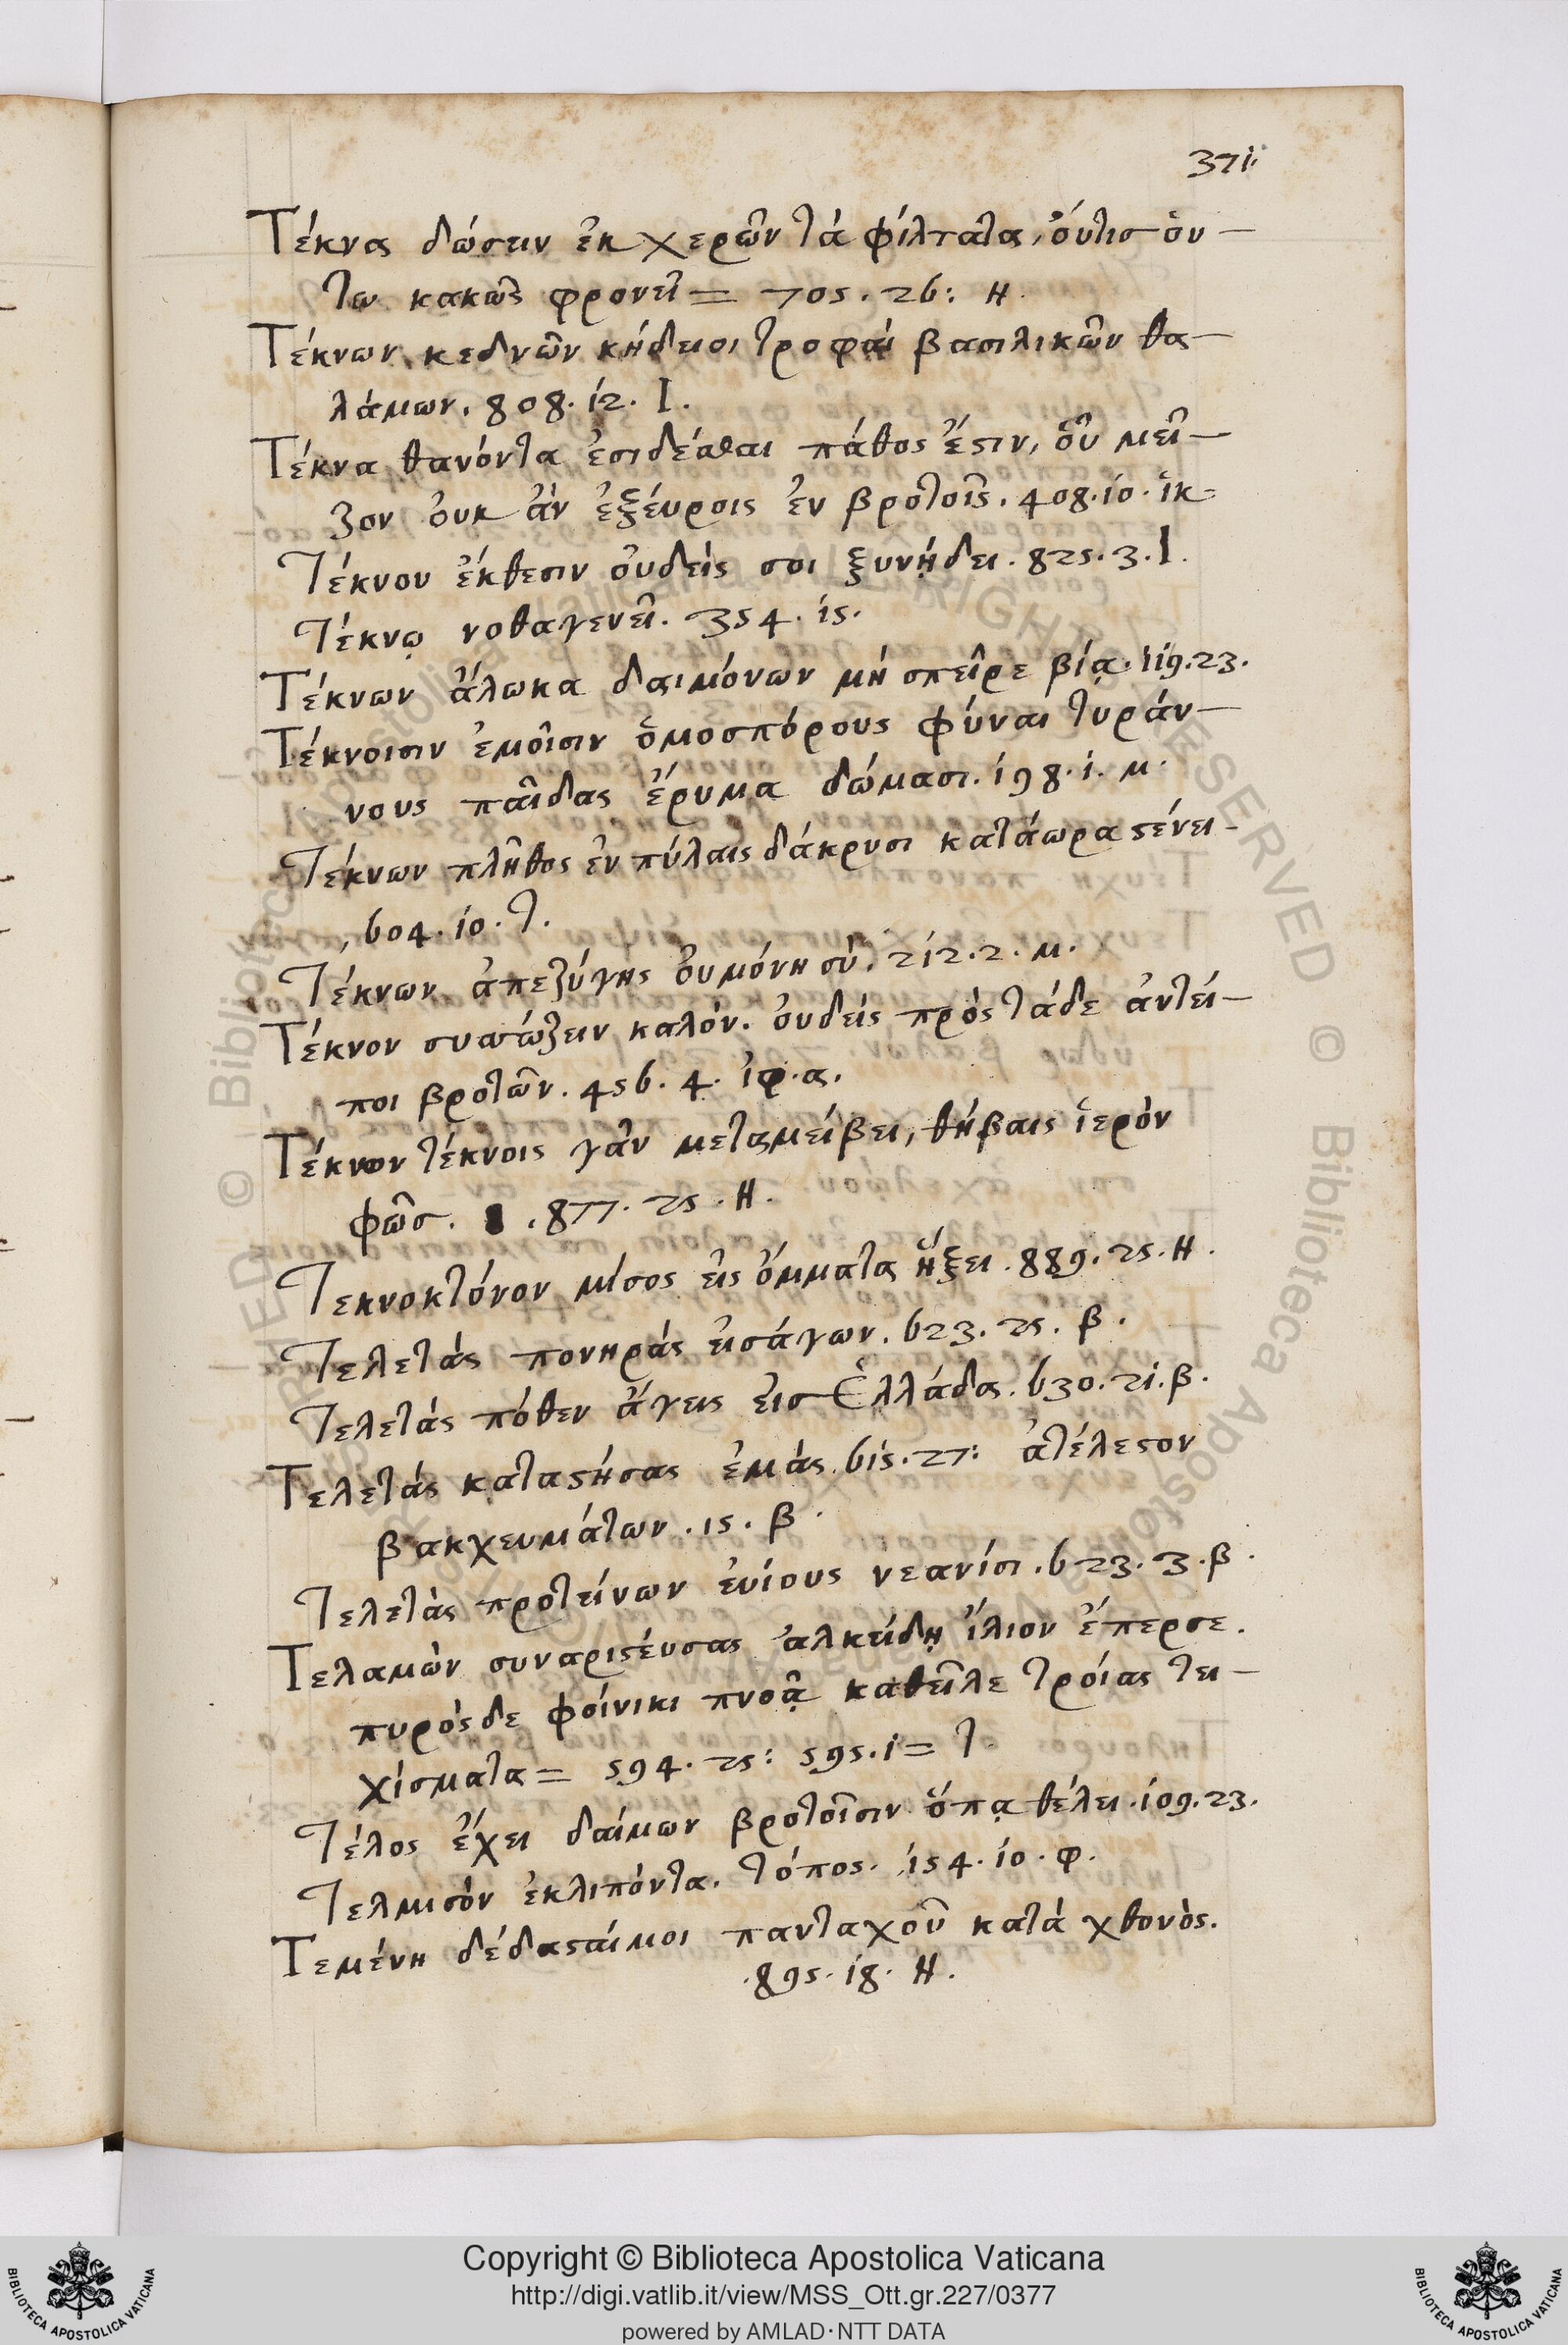 371
Τέκνα δώσειν ἐκ χερῶν τὰ φίλτατα, ὄυτισ ὅυ—
τω κακῶς φρονεῖ = 705. 26: Η.
Τέκνων κεδνῶν κήδειοι τροφαὶ βασιλικῶν θα—
λάμων. 808. 12. Ι.
Τέκνα θανόντα ἐσιδέσθαι πάθος ἔςιν, οὗ μεῖ—
ζον ὀυκ ἂν ἐξεύροις ἐν βροτοῖς. 408. 10. ἱκ=
Τέκνου ἔκθεσιν ὀυδεὶς σοι ξυνῄδει. 825. 3. Ι.
Τέκνῳ νοθαγενεῖ. 354. 15.
Τέκνων ἄλωκα δαιμόνων μὴ σπεῖρε βίᾳ. 119. 23.
Τέκνοισιν ἐμοῖσιν ὁμοσπόρους φύναι τυράν—
νους παῖδας ἔρυμα δώμασι. 198. 1. μ.
Τέκνων πλῆθος ἐν πύλαις δάκρυσι κατάωρα ςένει—
, 604. 10. τ.
Τέκνων ἀπεζύγης ὀυμόνη σὺ. 212. 2. μ.
Τέκνον συσσώζειν καλόν. ὀυδεὶς πρὸς τάδε ἀντεί—
ποι βροτῶν. 456. 4. ἰφ. α.
Τέκνον τέκνοις γᾶν μεταμείβει, θήβαις ἱερὸν
φῶσ. . 877. 25. Η.
Τεκνοκτόνον μίσος εἰς ὄμματα ἥξει. 889. 25. Η.
Τελετάς πονηράς εἰσάγων. 623. 25. β.
Τελετάς πόθεν ἄγεις εἰσ Ἑλλάδα. 630. 21. β.
Τελετάς καταςήσας ἐμάς. 615. 27: ἀτέλεςον
βακχευμάτων. 15. β.
Τελετὰς προτείνων ἐυίους νεανίσι. 623. 3. β.
Τελαμὼν συναριςεύσας ἀλκείδῃ ἴλιον ἔπερσε.
πυρὸς δε φοίνικι πνοᾷ καθεῖλε τροίας τει—
χίσματα = 594. 25: 595. 1 = τ.
Τέλος ἔχει δαίμων βροτοῖσιν ὅπᾳ θέλει. 109. 23.
Τελμισὸν ἐκλιπόντα. τόπος. 154. 10. φ.
Τεμένη δέδαςαίμοι πανταχοῦ κατὰ χθονὸς.
.895. 18. Η.
Copyright © Biblioteca Apostolica Vaticana
http://digi.vatlib.it/view/MSS_Ott.gr.227/0377
powered by AMLAD·NTT DATA